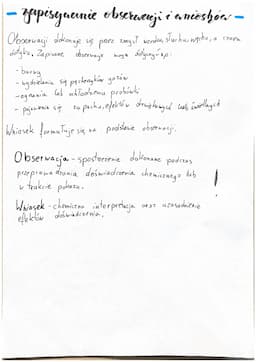 - zapisywanie obserwacji i wniosków -
Obserwacji dokonuje się przez zmysł wzroku, słuchu, węchu, a czasem
dotyku. Zapisane obserwacje mogą dotyczyć np:
- barwy
- wydzielania się pęcherzyków gazów
- ogrzania lub ochłodzenia probówki
- pojawienia się zapachu, efektów dźwiękowych lub świetlnych
Wniosek formułuje się na podstawie obserwacji.
Obserwacja - spostrzeżenie dokonane podczas
przeprowadzania doświadczenia chemicznego lub
w trakcie pokazu. !
Wniosek - chemiczna interpretacja oraz uzasadnienie
efektów doświadczenia.